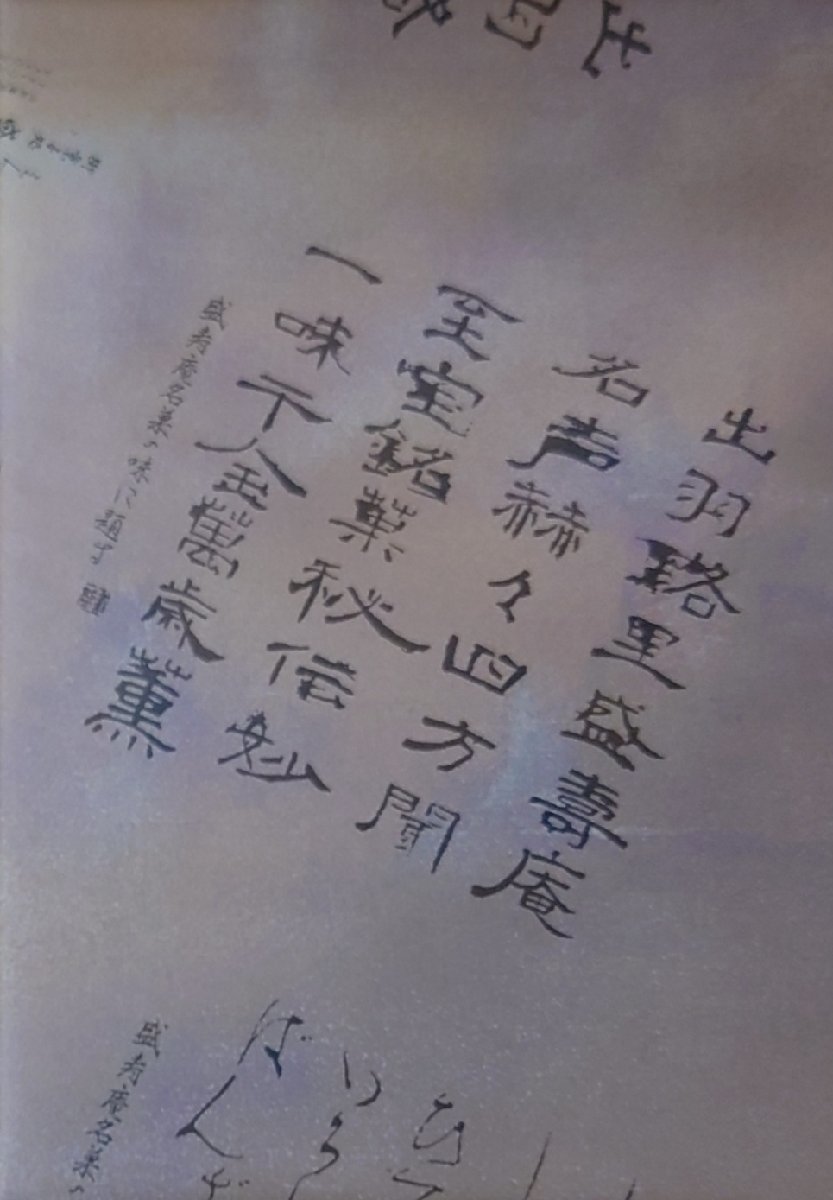 出羽路里盛壽庵
名声赫々四方聞
至宝銘菓秘伝妙
一味千金萬歳薫
盛寿庵名菓の味に題す
盛寿庵名菓の